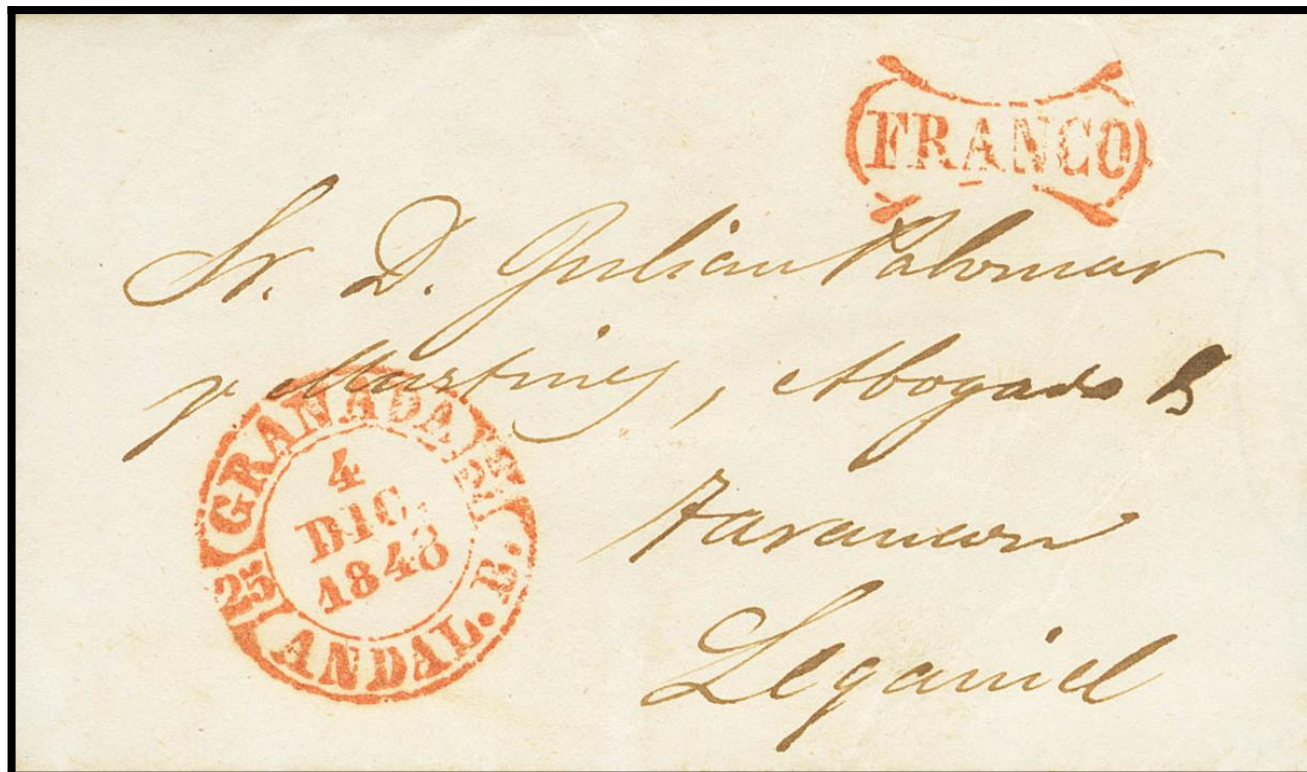 FRANCO
Sr. D. Julian Palomar
y Martinez, Abogado
Tarancon
Leganiel
GRANADA
25 25
4
DIC.
1848
ANDAL. B.